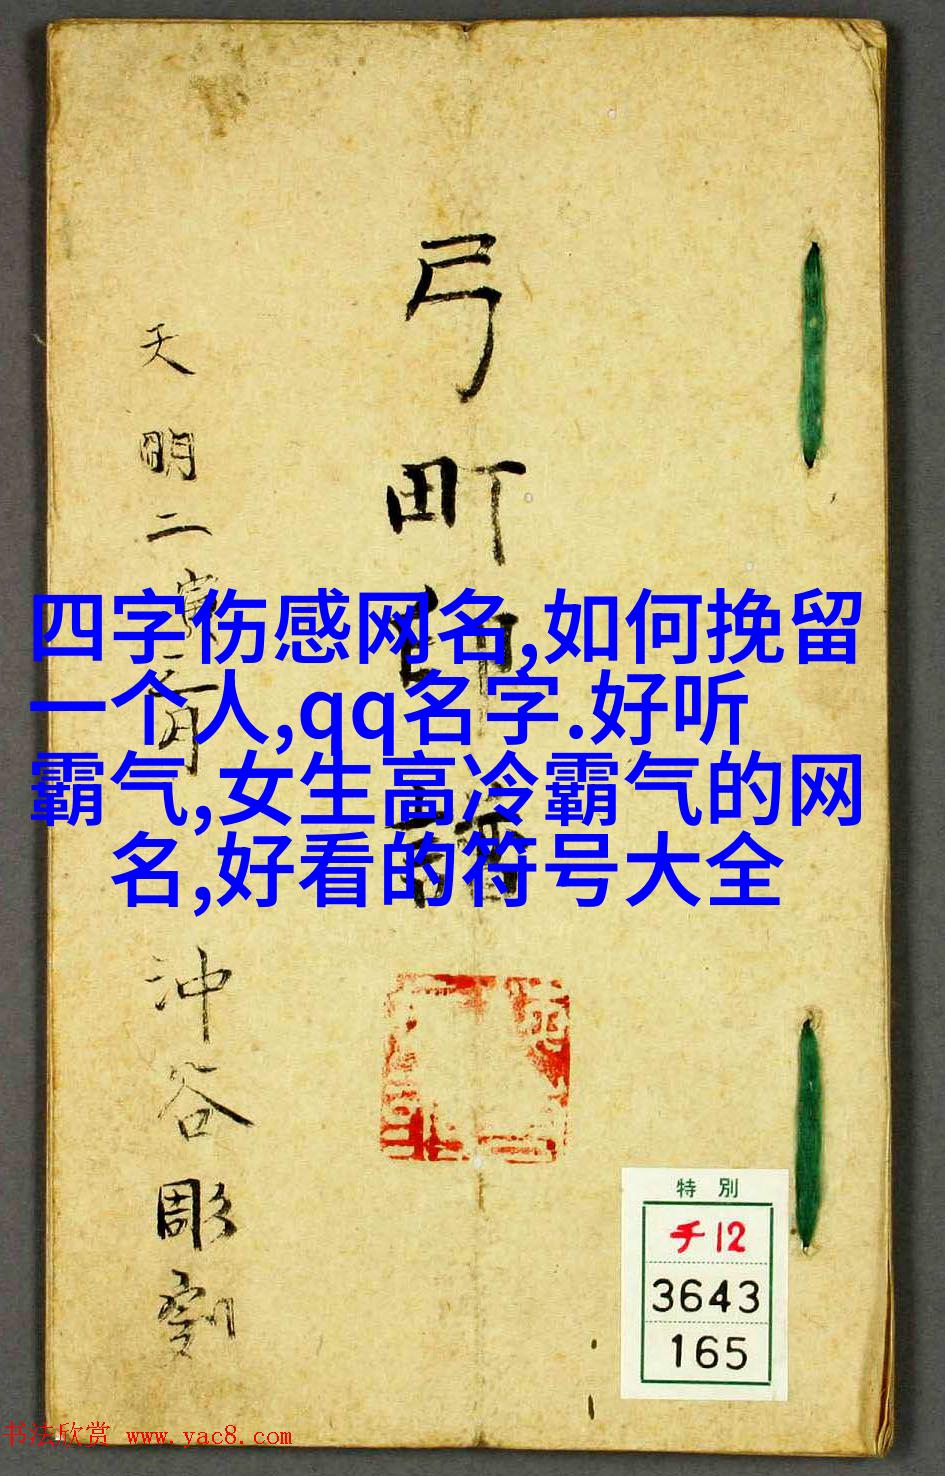 弓町印譜
天明二寅二月
沖谷彫刻
四字伤感网名,如何挽留
一个人,qq名字.好听
霸气,女生高冷霸气的网
名,好看的符号大全
特別
チ12
3643
165
书法欣赏 www.yac8.com